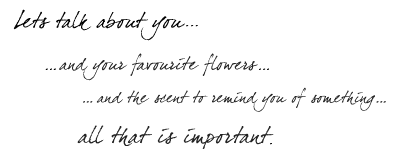 Lets talk about you...
...and your favourite flowers...
...and the scent to remind you of something...
all that is important.